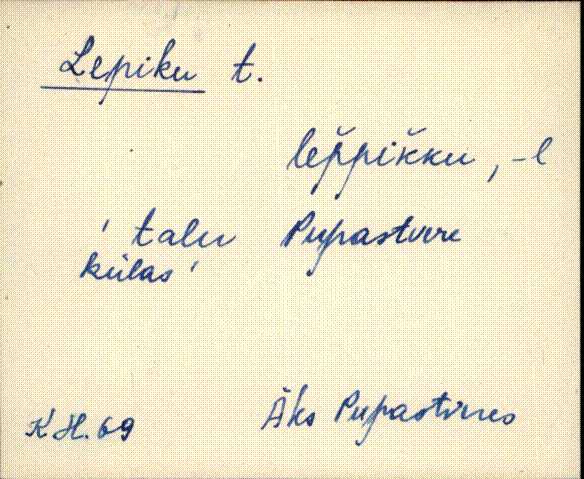 Lepiku t.
lep̌pik̆ku, -l
' talu Pupastvere
külas'
KH. 69 Äks Pupastveres